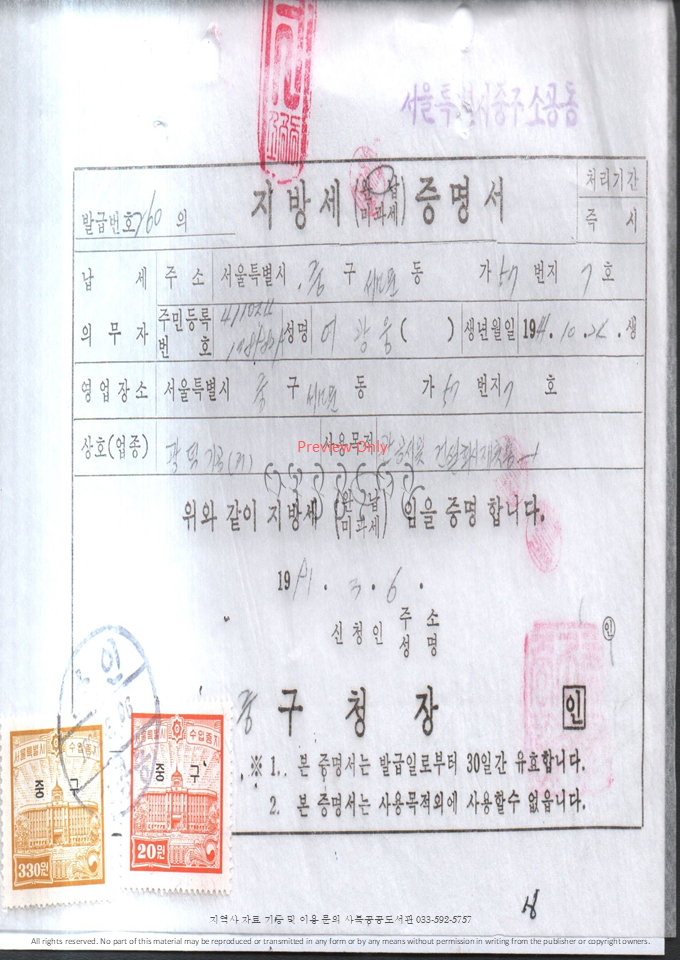 서울특별시중구소공동
지방세 (완납 미과세) 증명서
처리기간
즉 시
발급번호 260 의
납 세 주 소 서울특별시 중 구 동 가 57 번지 7 호
의 무 자 주민등록 번 호 성명 이 광 웅 ( ) 생년월일 1941.10.24.생
영업장소 서울특별시 중 구 동 가 57 번지 7 호
상호(업종) 사용목적
Preview Only
위와 같이 지방세 (완납 미과세) 임을 증명 합니다.
1981. 3. 6.
신청인 주 소
성 명 ㊞
중 구 청 장 인
※ 1. 본 증명서는 발급일로부터 30일간 유효합니다.
2. 본 증명서는 사용목적외에 사용할수 없읍니다.
서울특별시 수입증지
중 구
330원
서울특별시 수입증지
중 구
20원
지역사 자료 기증 및 이용 문의 사북공공도서관 033-592-5757
All rights reserved. No part of this material may be reproduced or transmitted in any form or by any means without permission in writing from the publisher or copyright owners.